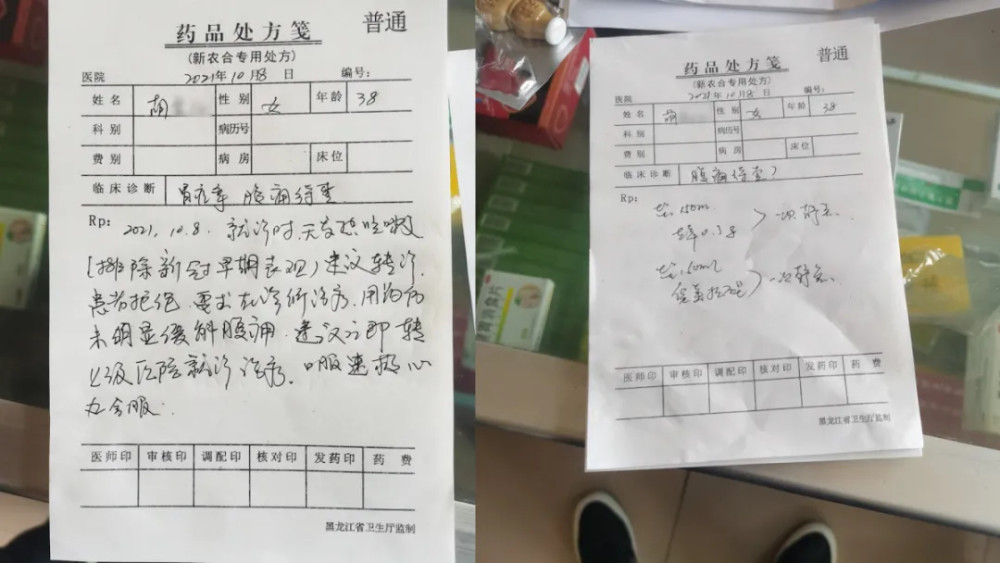 药品处方笺
普通
(新农合专用处方)
医院 2021年10月8日 编号:
姓名 胡 性别 女 年龄 38
科别 病历号
费别 病房 床位
临床诊断 腹痛待查
Rp: 2021.10.8. 就诊时无发热咳嗽
(排除新冠早期表现)建议转诊.
患者拒绝.要求在诊所治疗.用药后
未明显缓解腹痛.建议立即转
上级医院就诊治疗.口服
医师印 审核印 调配印 核对印 发药印 药费
黑龙江省卫生厅监制
药品处方笺
普通
(新农合专用处方)
医院 2021年10月8日 编号:
姓名 胡 性别 女 年龄 38
科别 病历号
费别 病房 床位
临床诊断 腹痛待查?
Rp:
150ml
一次静点.
150ml
一次静点.
医师印 审核印 调配印 核对印 发药印 药费
黑龙江省卫生厅监制